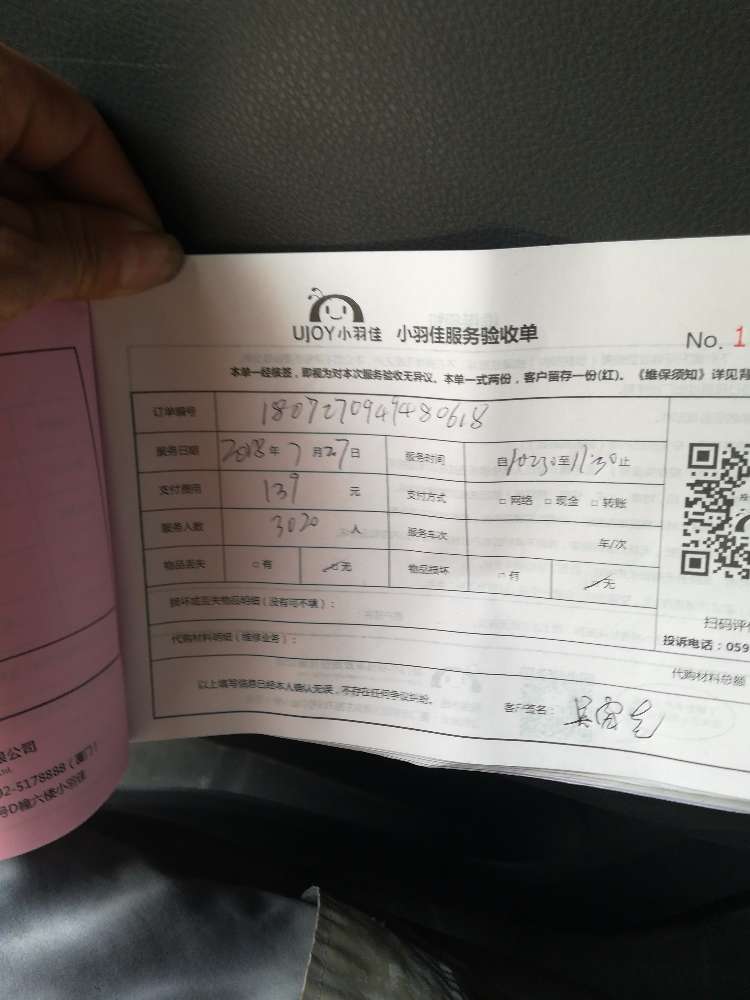 UJOY小羽佳 小羽佳服务验收单
No. 1
本单一经核签，即视为对本次服务验收无异议。本单一式两份，客户留存一份(红)。《维保须知》详见背
订单编号 180727094948061​8
服务日期 2018年7月27日 服务时间 自10:30至11:30止
支付费用 139 元 支付方式 □网络 □现金 □转账
服务人数 3020 人 服务车次 车/次
物品丢失 □有 □无 物品损坏 □有 无
损坏或丢失物品明细（没有可不填）：
扫码评价
投诉电话：059
代购材料明细（维修业务）：
代购材料总额
以上填写信息已经本人确认无误，不存在任何争议纠纷。 客户签名：
限公司
92-5178888（厦门）
号D幢六楼小羽佳